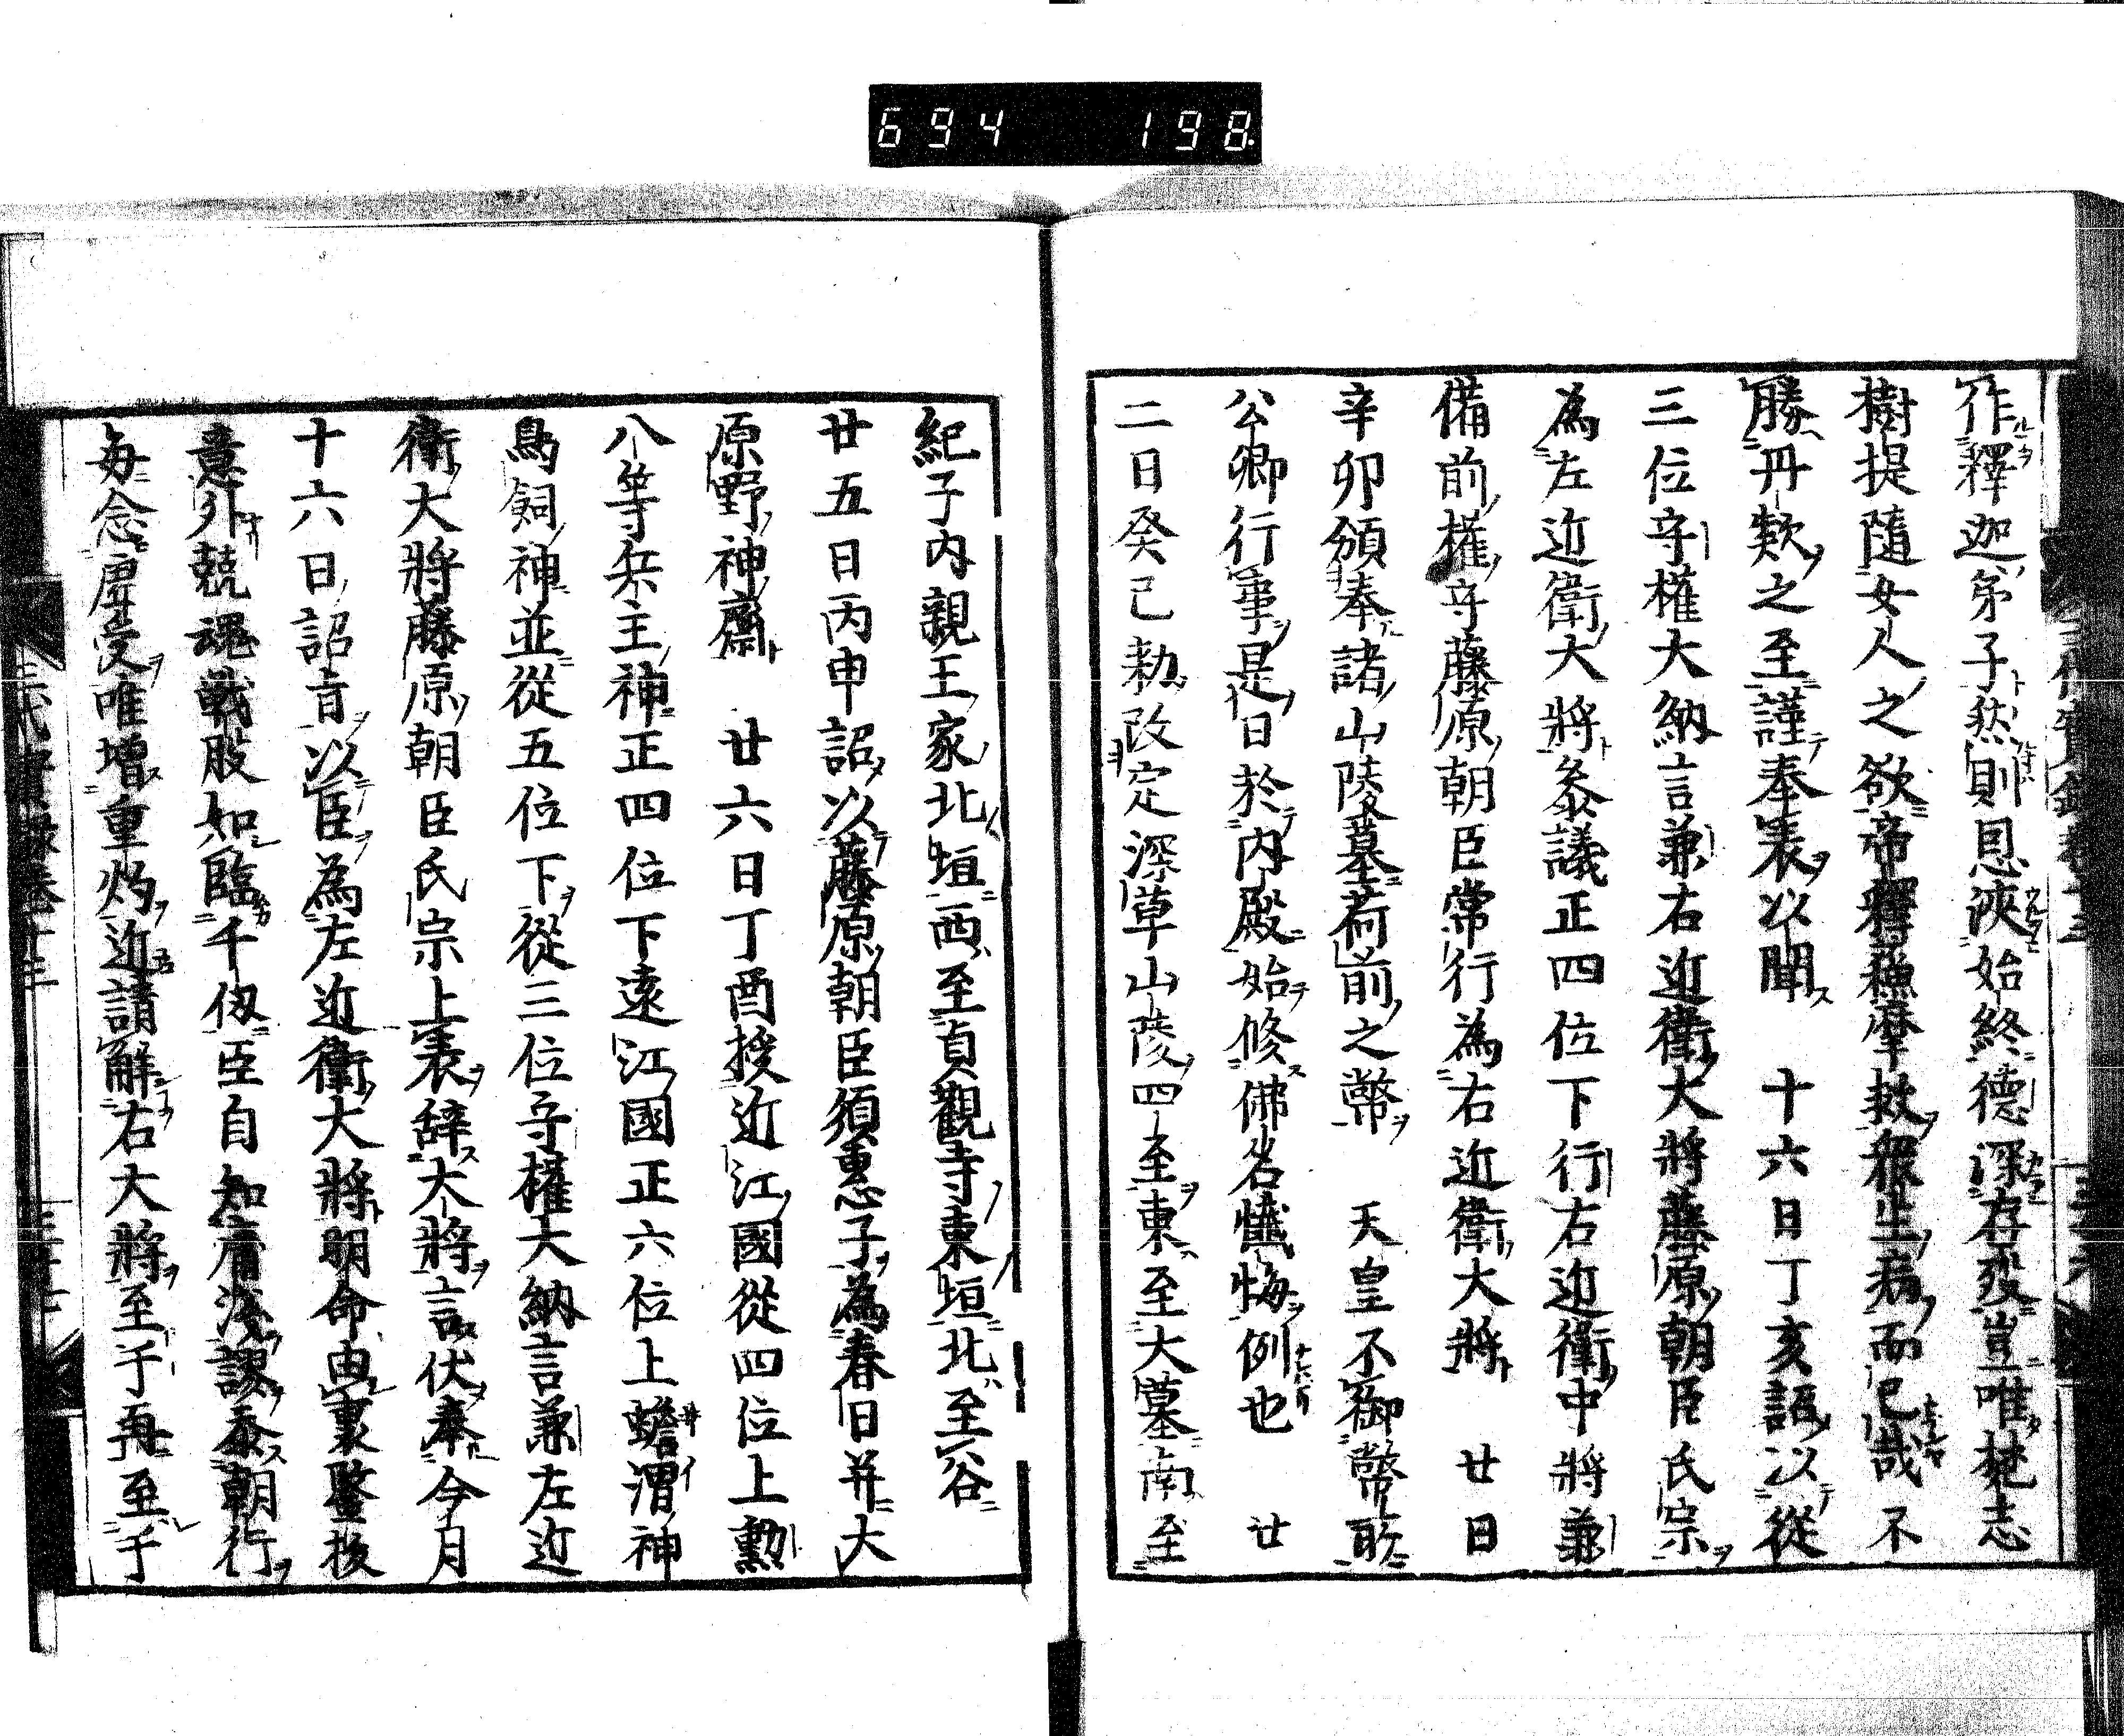 694 198
作釋迦弟子然則恩浹始終德深存歿豈唯梵志
樹提隨女人之欲帝釋蘓摩救衆生病而已哉不
勝丹欵之至謹奉表以聞 十六日丁亥詔以從
三位守權大納言兼右近衛大將藤原朝臣氏宗
為左近衛大將參議正四位下行右近衛中將兼
備前權守藤原朝臣常行為右近衛大將 廿日
辛卯頒奉諸山陵墓荷前之幣 天皇不御幣所
公卿行事是日於內殿始修佛名懺悔例也 廿
二日癸巳勅改定深草山陵四至東至大墓南至
紀子內親王家北垣西至貞觀寺東垣北至谷
廿五日丙申詔以藤原朝臣須惠子為春日并大
原野神齋 廿六日丁酉授近江國從四位上勳
八等兵主神正四位下遠江國正六位上蟾渭神
鳥飼神並從五位下從三位守權大納言兼左近
衛大將藤原朝臣氏宗上表辞大將言伏奉今月
十六日詔旨以臣為左近衛大將明命由裏鑒拔
意外兢魂戰股如臨千仭臣自知庸淺謬忝朝行
每念虛受唯增重灼近請解右大將至于再至于